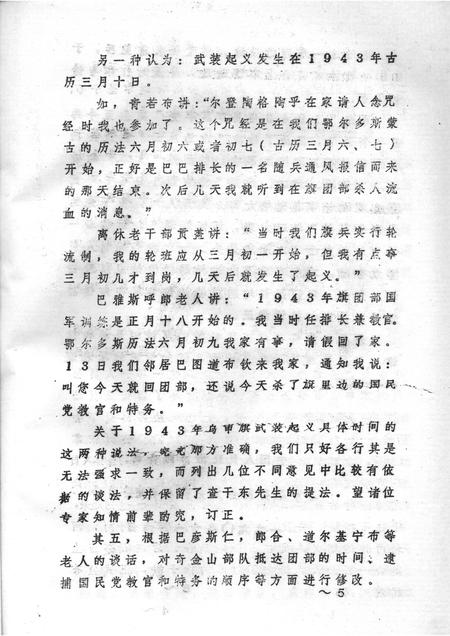 另一种认为：武装起义发生在1943年古
历三月十日。
如，肯若布讲：“尔登陶格陶乎在家请人念咒
经时我也参加了。这个咒经是在我们鄂尔多斯蒙
古的历法六月初六或者初七（古历三月六、七）
开始，正好是巴巴排长的一名随兵通风报信而来
的那天结束。次后几天我就听到在旗团部杀人流
血的消息。”
离休老干部贡英讲：“当时我们旗兵实行轮
流制，我的轮班应从三月初一开始，但我有点事
三月初九才到岗，几天后就发生了起义。”
巴雅斯呼郎老人讲：“1943年旗团部国
军训练是正月十八开始的。我当时任排长兼教官。
鄂尔多斯历法六月初九我家有事，请假回了家。
13日我们邻居巴图道布钦来我家，通知我说：
叫您今天就回团部，还说今天杀了旗里边的国民
党教官和特务。”
关于1943年乌审旗武装起义具体时间的
这两种说法，究竟那方准确，我们只好各行其是
无法强求一致，而列出几位不同意见中比较有依
据的谈法，并保留了查干东先生的提法。望诸位
专家知情前辈酌究，订正。
其五，根据巴彦斯仁，郎合、道尔基宁布等
老人的谈话，对奇金山部队抵达团部的时间、逮
捕国民党教官和特务的顺序等方面进行修改。
～5